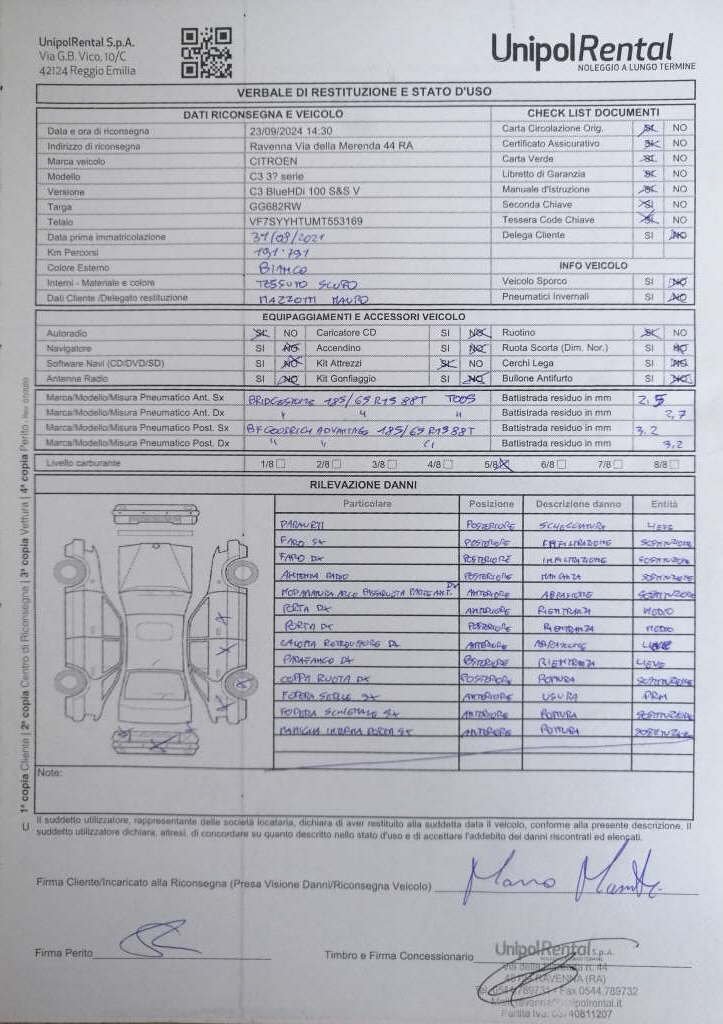 UnipolRental S.p.A.
Via G.B. Vico, 10/C
42124 Reggio Emilia
UnipolRental
NOLEGGIO A LUNGO TERMINE
VERBALE DI RESTITUZIONE E STATO D'USO
DATI RICONSEGNA E VEICOLO
Data e ora di riconsegna 23/09/2024 14:30
Indirizzo di riconsegna Ravenna Via della Merenda 44 RA
Marca veicolo CITROEN
Modello C3 3? serie
Versione C3 BlueHDi 100 S&S V
Targa GG682RW
Telaio VF7SYYHTUMT553169
Data prima immatricolazione 31/08/2021
Km Percorsi 191.791
Colore Esterno BIANCO
Interni - Materiale e colore TESSUTO SCURO
Dati Cliente /Delegato restituzione MAZZOTTI MAURO
CHECK LIST DOCUMENTI
Carta Circolazione Orig. SI NO
Certificato Assicurativo SI NO
Carta Verde SI NO
Libretto di Garanzia SI NO
Manuale d'Istruzione SI NO
Seconda Chiave SI NO
Tessera Code Chiave SI NO
Delega Cliente SI NO
INFO VEICOLO
Veicolo Sporco SI NO
Pneumatici Invernali SI NO
EQUIPAGGIAMENTI E ACCESSORI VEICOLO
Autoradio SI NO Caricatore CD SI NO Ruotino SI NO
Navigatore SI NO Accendino SI NO Ruota Scorta (Dim. Nor.) SI NO
Software Navi (CD/DVD/SD) SI NO Kit Attrezzi SI NO Cerchi Lega SI NO
Antenna Radio SI NO Kit Gonfiaggio SI NO Bullone Antifurto SI NO
Marca/Modello/Misura Pneumatico Ant. Sx BRIDGESTONE 185/65 R15 88T T005 Battistrada residuo in mm 2,5
Marca/Modello/Misura Pneumatico Ant. Dx " " " Battistrada residuo in mm 2,7
Marca/Modello/Misura Pneumatico Post. Sx BFGOODRICH ADVANTAG 185/65 R15 88T Battistrada residuo in mm 3,2
Marca/Modello/Misura Pneumatico Post. Dx " " " Battistrada residuo in mm 3,2
Livello carburante 1/8 2/8 3/8 4/8 5/8 6/8 7/8 8/8
RILEVAZIONE DANNI
Particolare Posizione Descrizione danno Entità
PARAURTI POSTERIORE SCHEGGIATURA LIEVE
FARO SX POSTERIORE INFILTRAZIONE SOSTITUZIONE
FARO DX POSTERIORE INFILTRAZIONE SOSTITUZIONE
ANTENNA RADIO MANCANZA SOSTITUZIONE
MODANATURA ARCO PASSARUOTA PARTE ANT. DX ANTERIORE ABRASIONE SOSTITUZIONE
PORTA DX ANTERIORE RIENTRANZA MEDIO
PORTA DX POSTERIORE RIENTRANZA MEDIO
CALOTTA RETROVISORE DX ANTERIORE ABRASIONE LIEVE
PARAFANGO DX POSTERIORE RIENTRANZA LIEVE
COPPA RUOTA DX POSTERIORE ROTTURA SOSTITUZIONE
FODERA SEDILE SX ANTERIORE USURA
FODERA SCHIENALE SX ANTERIORE ROTTURA SOSTITUZIONE
MANIGLIA INTERNA PORTA SX ANTERIORE ROTTURA SOSTITUZIONE
Note:
Il suddetto utilizzatore, rappresentante delle società locataria, dichiara di aver restituito alla suddetta data il veicolo, conforme alla presente descrizione. Il
suddetto utilizzatore dichiara, altresì, di concordare su quanto descritto nello stato d'uso e di accettare l'addebito dei danni riscontrati ed elencati.
Firma Cliente/Incaricato alla Riconsegna (Presa Visione Danni/Riconsegna Veicolo)
Firma Perito
Timbro e Firma Concessionario
UnipolRental S.p.A.
NOLEGGIO A LUNGO TERMINE
Via della Merenda n. 44
RAVENNA (RA)
Fax 0544.789732
1ª copia Cliente | 2ª copia Centro di Riconsegna | 3ª copia Vettura | 4ª copia Perito